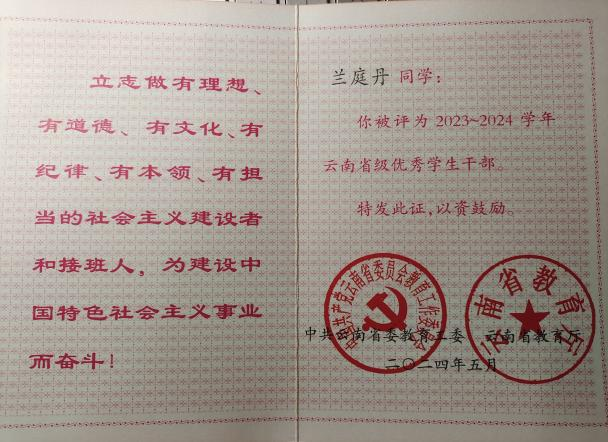 立志做有理想、
有道德、有文化、有
纪律、有本领、有担
当的社会主义建设者
和接班人，为建设中
国特色社会主义事业
而奋斗！
兰庭丹 同学：
你被评为 2023~2024 学年
云南省级优秀学生干部。
特发此证，以资鼓励。
中国共产党云南省委员会教育工作委员会
云南省教育厅
中共云南省委教育工委 云南省教育厅
二〇二四年五月